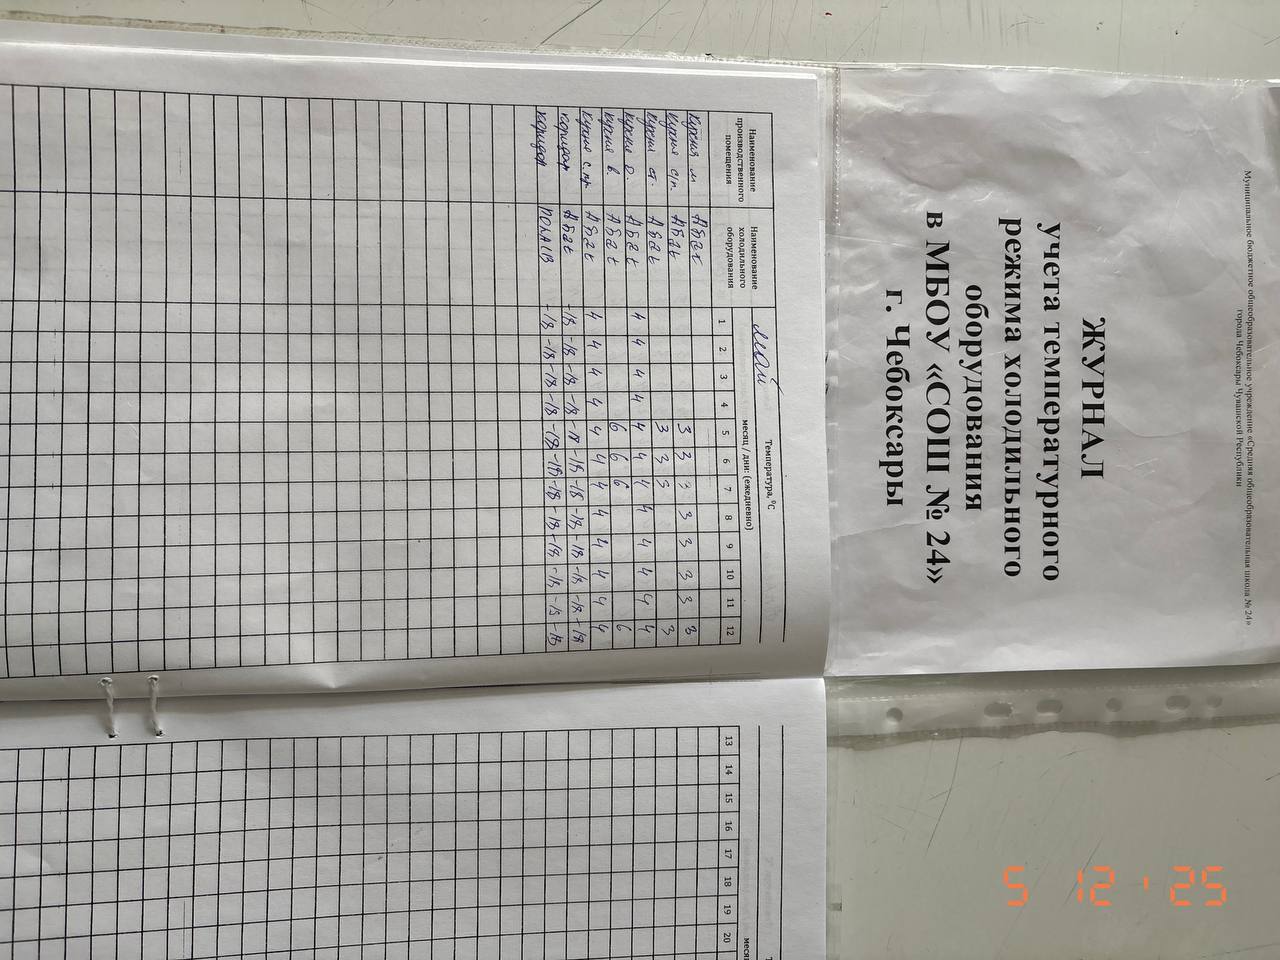 Муниципальное бюджетное общеобразовательное учреждение «Средняя общеобразовательная школа № 24»
города Чебоксары Чувашской Республики
ЖУРНАЛ
учета температурного
режима холодильного
оборудования
в МБОУ «СОШ № 24»
г. Чебоксары
Температура, °С
май
месяц / дни: (ежедневно)
Наименование производственного помещения
Наименование холодильного оборудования
1 2 3 4 5 6 7 8 9 10 11 12
Кухня м
Кухня с/п. 3 3 3 3 3 3 3 3
Кухня ст. 3 3 3 3
Кухня о. 4 4 4 4 4 4 4 4 4 4 4 4
Кухня в. 6 6 6 6
Кухня с.пр 4 4 4 4 4 4 4 4 4 4 4 4
коридор -18 -18 -18 -18 -18 -18 -18 -18 -18 -18 -18 -18
коридор -18 -18 -18 -18 -18 -18 -18 -18 -18 -18 -18 -18
13 14 15 16 17 18 19 20
5 12 '25